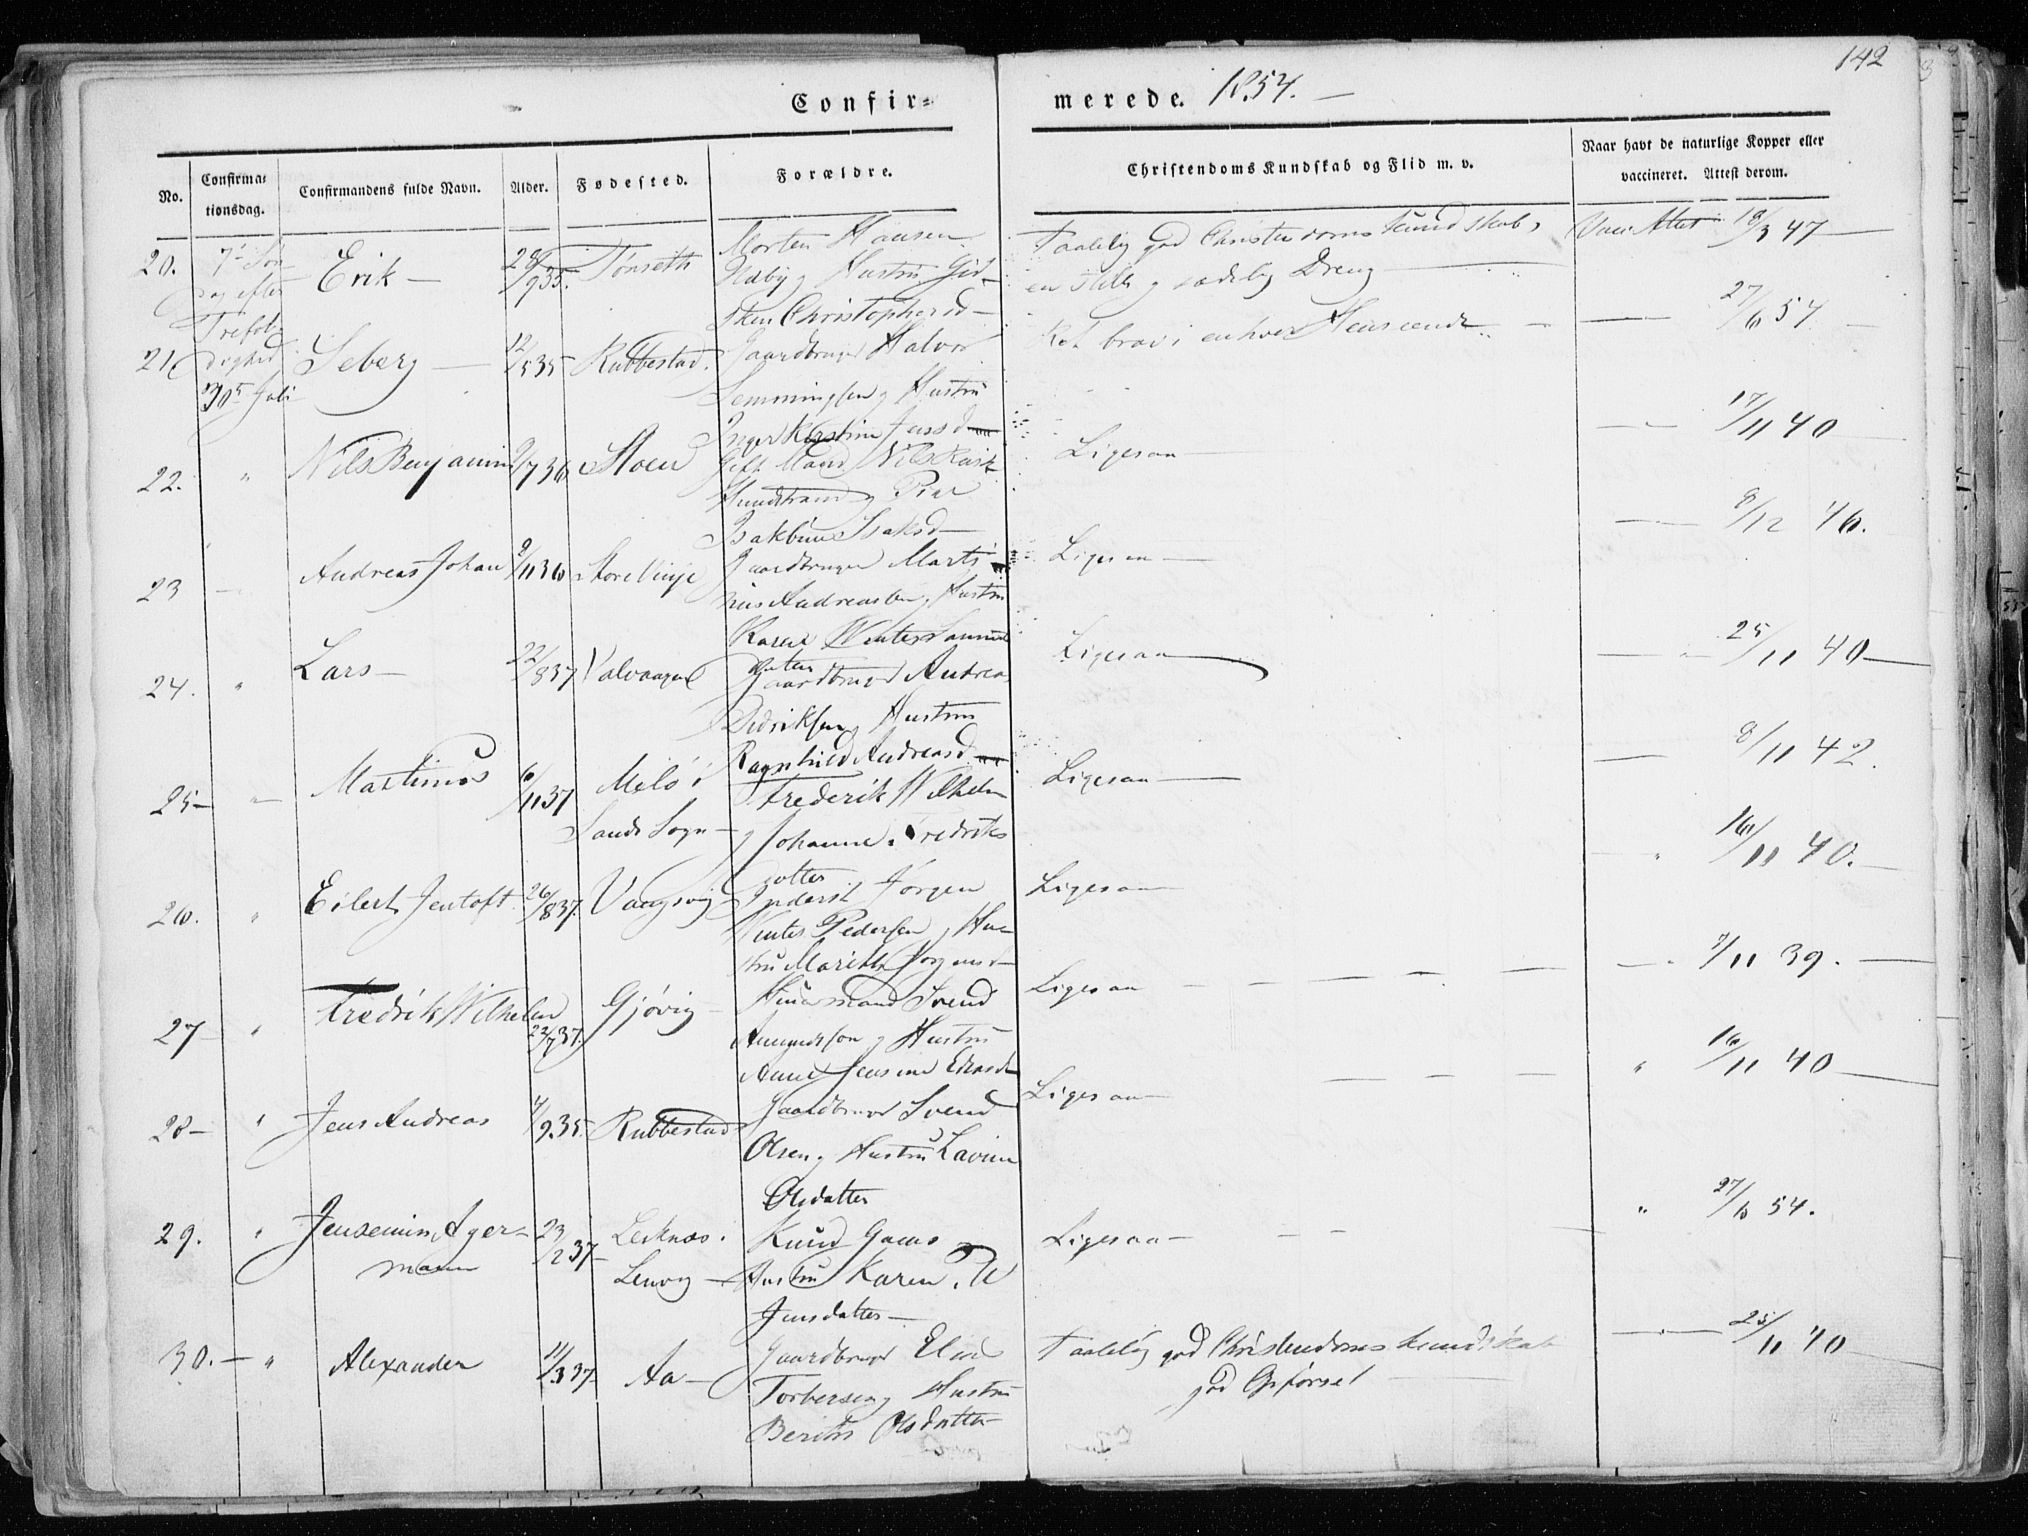 142
Confir=
merede. 1854.
No.
Confirma-
tionsdag.
Confirmandens fulde Navn.
Alder.
Fødested.
Forældre.
Christendoms Kundskab og Flid m. v.
Naar havt de naturlige Kopper eller
vaccineret. Attest derom.
20. 7de Søn Erik — 28/9 35. Tønseth Morten Hansen
dag efter og Hustru Gid-
sken Christopherd—
Taalelig god Christendoms Kundskab,
en stille og sædelig Dreng
Vacc. Attest 18/3 47
21. Trefol-
dighed Seberg — 12/5 35 Rubbestad. Gaardbruger Halvor
30te Juli
Lemmingsen og Hustru
Inger Kirstine Jensd
Ret brav i enhver Henseende — 27/6 54
22. " Nils Benjamin 9/7 36 Stoen Gift Mand Nils
og
Isaksd—
Ligesaa 17/11 40
23 — Andreas Johan 9/11 36 Store Vinje Gaardbruger Marti-
nus Andreassen, Hustru
Karen Winter Samuels
datter
Ligesaa — 9/12 46.
24. " Lars — 22/8 37 Valvaagen Gaardbruger Andreas
Didriksen, Hustru
Ragnhild Andreasd
Ligesaa 25/11 40
25— " Martinus 6/11 37 Melö i
Sands Sogn— Frederik Wilhelm
og Johanne Fredriks
datter
Ligesaa — 8/11 42.
26. " Eilert Jentoft. 26/8 37. Vangsvig Inderst Jørgen
Winter Pedersen, Hu-
stru Marith Jørgensd—
Ligesaa " 16/11 40.
27 — " Fredrik Wilhelm 22/7 37. Gjøvig — Huusmand Svend
Amundsen og Hustru
Anne Jensine
Ligesaa — 7/11 39.
28— " Jens Andreas 4/9 35. Rubbestad Gaardbruger Svend
Olsen, Hustru Lavina
Olsdatter
Ligesaa— " 16/11 40
29. " Jensenius Ager-
mann 23/2 37— Leiknæs i
Lenvig — Knud
Hustru Karen
Jensdatter—
Ligesaa — " 27/6 54.
30.— " Alexander 11/3 37— Aa — Gaardbruger Elias
Torbersen, Hustru
Berith Olsdatter
Taalelig god Christendoms kundskab
god Opførsel 25/11 40